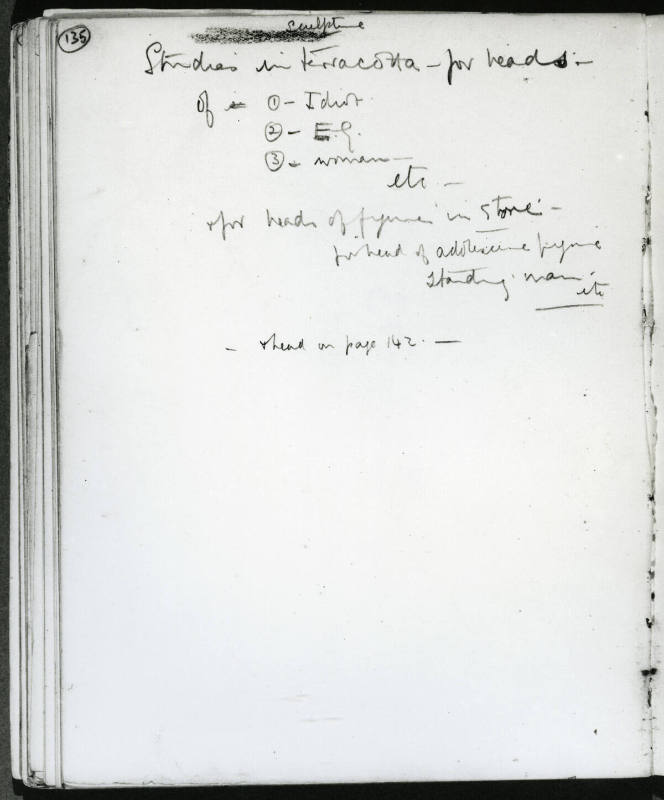 135
Sculpture
Studies in terracotta - for heads -
of - ① - Idiot
② - E.G.
③ - woman -
etc -
& for heads of figures in stone -
for head of adolescent figure
standing man -
etc
- & head on page 142. -